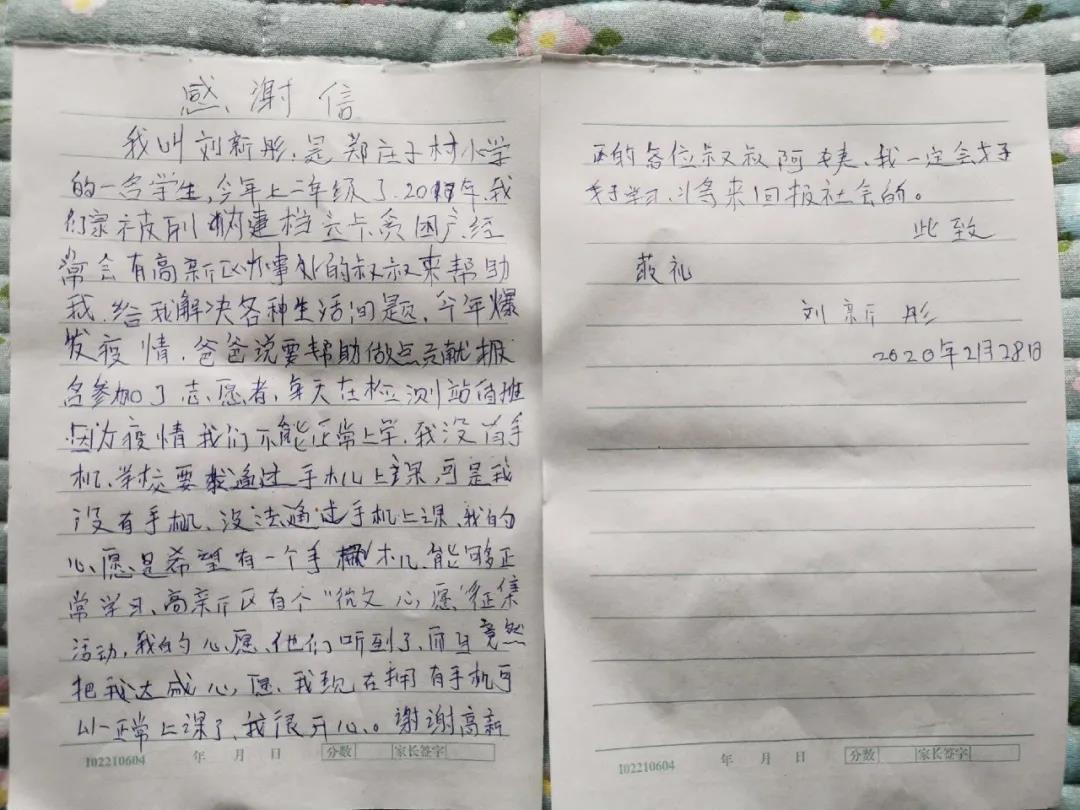 感谢信
我叫刘新彤，是郑庄子村小学
的一名学生，今年上二年级了．2017年，我
们家被列纳建档立卡贫困户，经
常会有高新区办事处的叔叔来帮助
我，给我解决各种生活问题，今年爆
发疫情，爸爸说要帮助做点贡献报
名参加了志愿者，每天在检测站值班
因为疫情我们不能正常上学，我没有手
机、学校要求通过手机上课，可是我
没有手机、没法通过手机上课、我的
心愿是希望有一个手机、能够正
常学习、高新区有个“微文心愿”征集
活动，我的心愿、他们听到了、而且竟然
把我达成心愿、我现在拥有手机可
以正常上课了、我很开心。谢谢高新
区的各位叔叔阿姨、我一定会好
好学习、将来回报社会的。
此致
敬礼
刘新彤
2020年2月28日
I02210604 年 月 日 分数 家长签字
I02210604 年 月 日 分数 家长签字